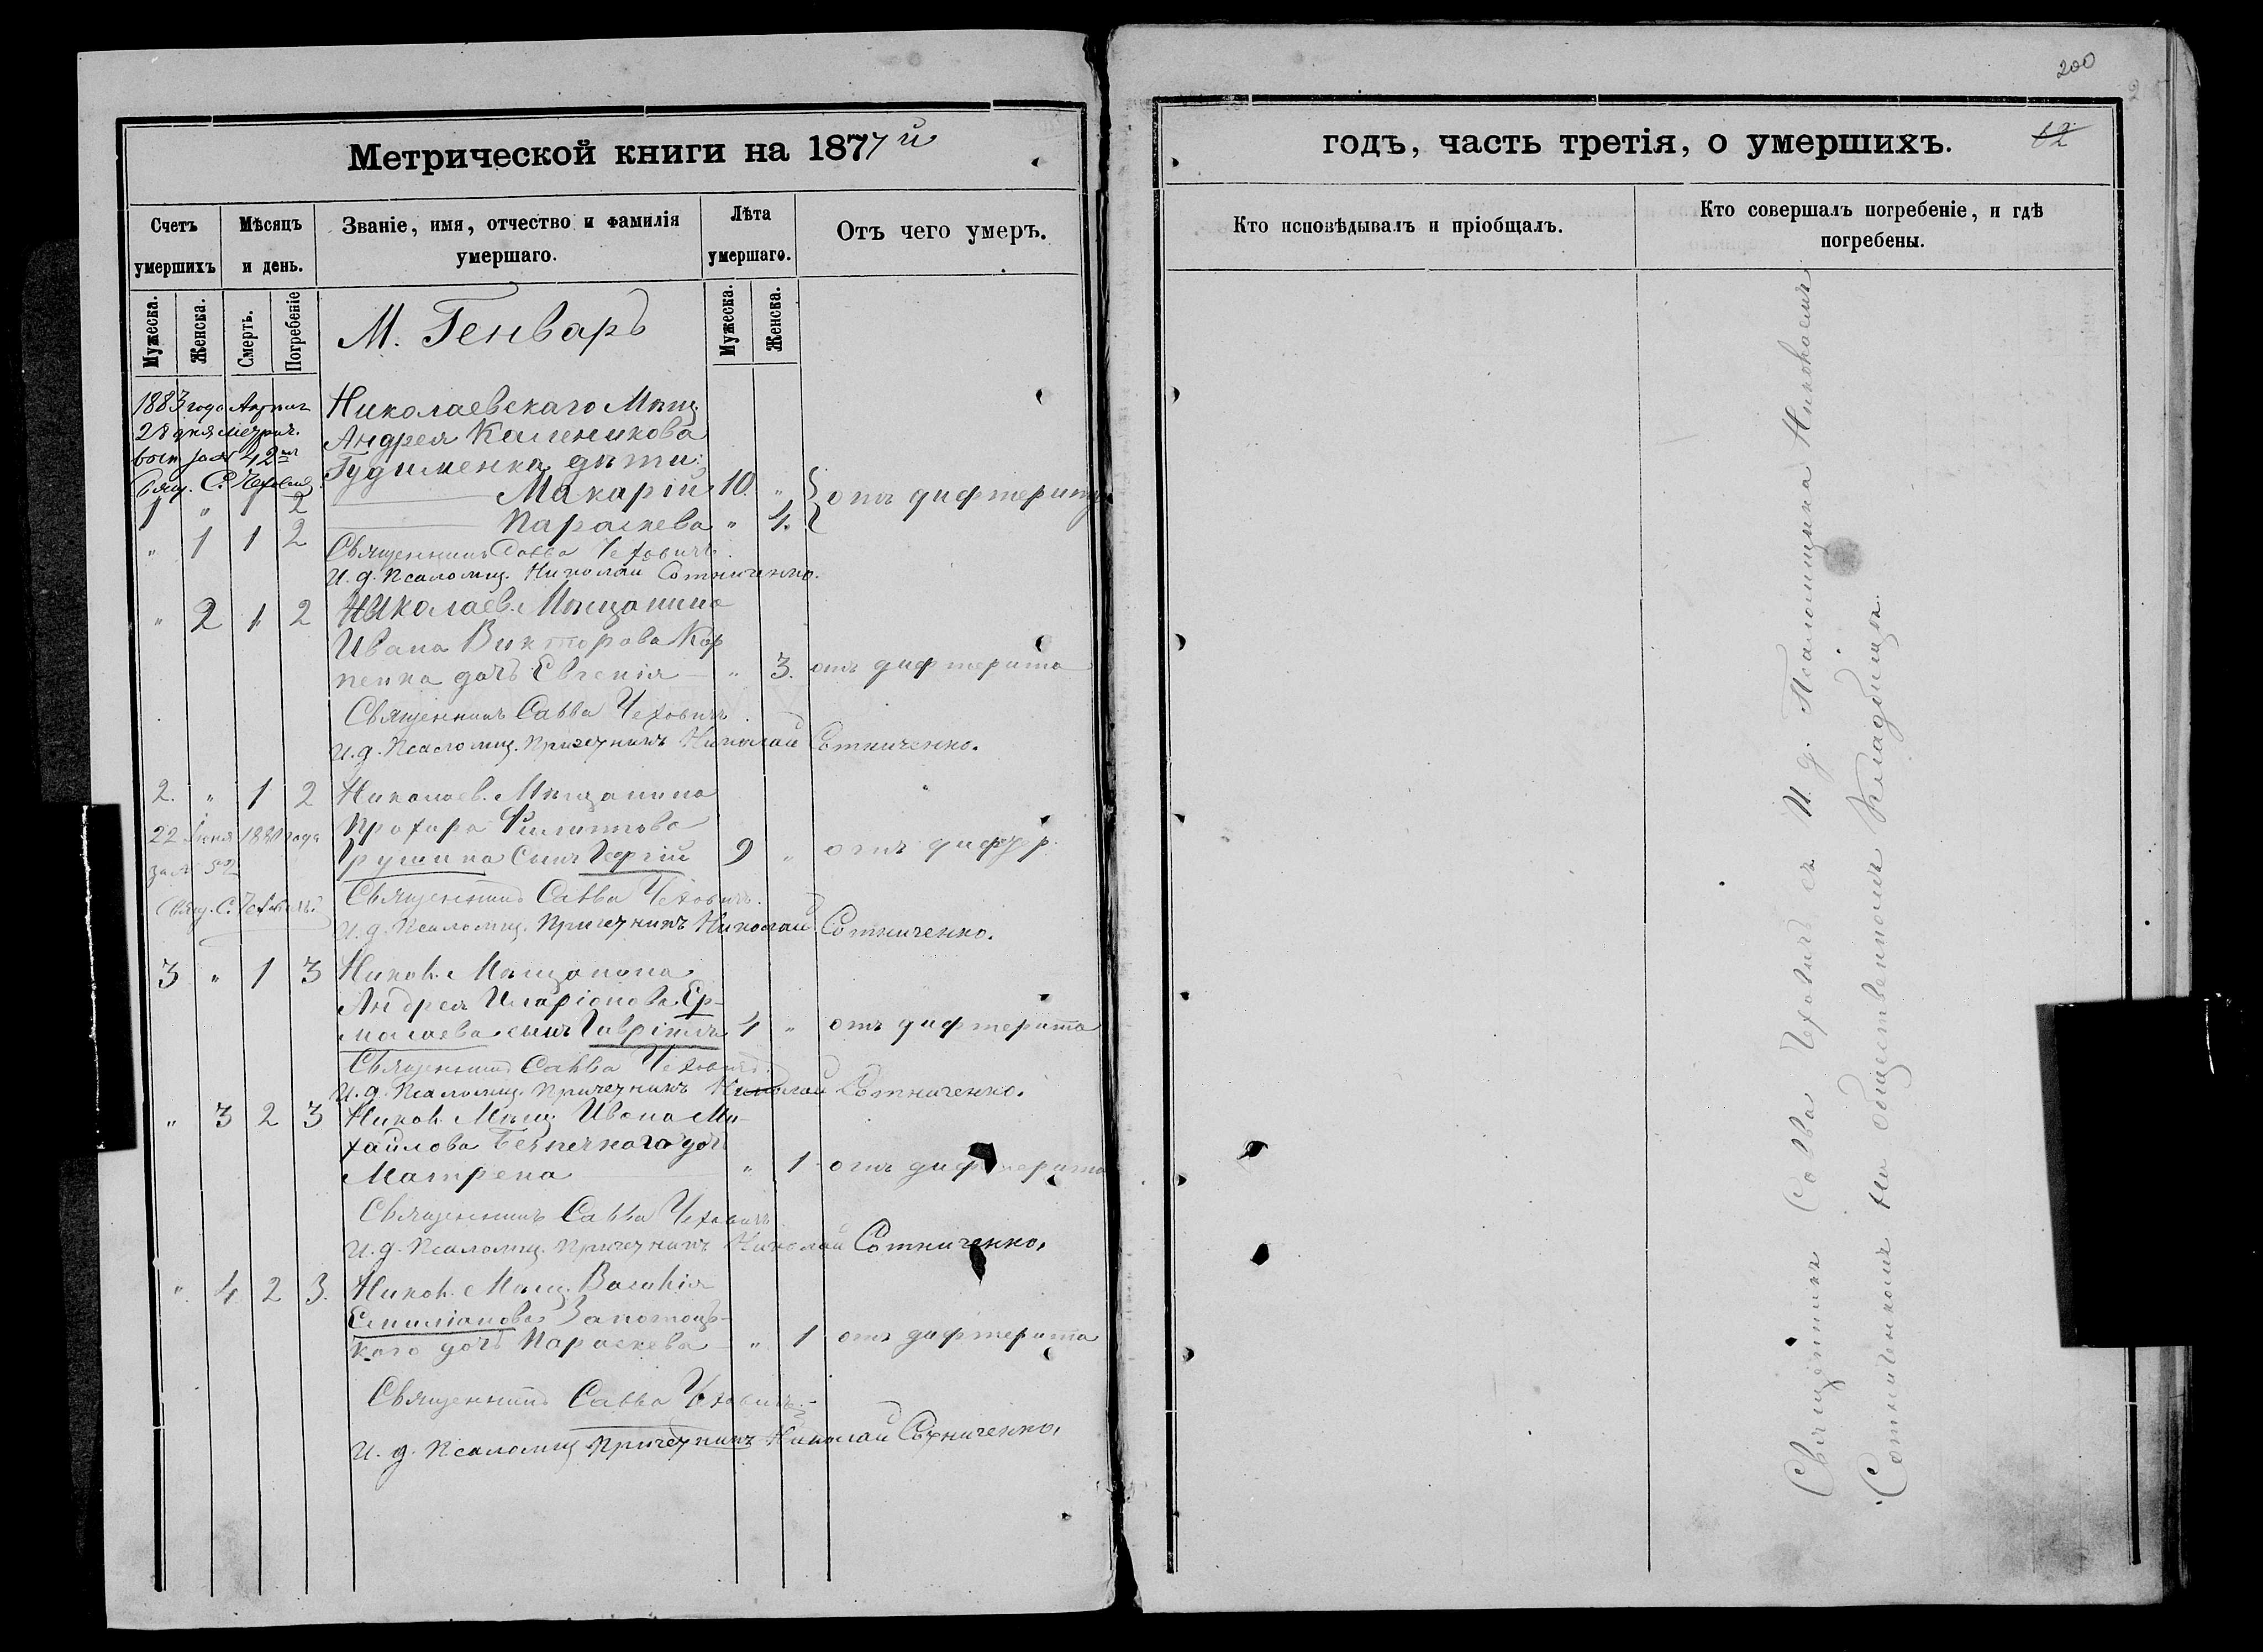 200
Метрической книги на 1877й
годъ, часть третія, о умершихъ.
12
Счетъ умершихъ
Мѣсяцъ и день.
Званіе, имя, отчество и фамилія умершаго.
Лѣта умершаго.
Отъ чего умеръ.
Кто исповѣдывалъ и пріобщалъ.
Кто совершалъ погребеніе, и гдѣ погребены.
Мужеска.
Женска.
Смерть.
Погребеніе
М. Генварь
Мужеска.
Женска.
1883 года
28 дня метрич.
за № 42
Свящ. С. Чеховичъ
Николаевскаго Мѣщ.
Андрея Каленикова
Гудименка дѣти:
1 " 1 2 Макарій 10. " отъ дифтерита
" 1 1 2 Параскева " 4.
Священникъ Савва Чеховичъ.
И. д. Псаломщ. Николай Сотниченко.
" 2 1 2 Николаев. Мѣщанина
Ивана Викторова Кар
пенка дочь Евгенія " 3. отъ дифтерита
Священникъ Савва Чеховичъ.
И. д. Псаломщ. Причетникъ Николай Сотниченко.
2. " 1 2 Николаев. Мѣщанина
Прохора Филиппова
сынъ Георгій 9 " отъ
22 Іюня года
за № 52
Свящ. С. Чеховичъ
Священникъ Савва Чеховичъ.
И. д. Псаломщ. Причетникъ Николай Сотниченко.
3 " 1 3 Никол. Мѣщанина
Андрея Иларіонова Ер-
малаева сынъ Гавріилъ 4 " отъ дифтерита
Священникъ Савва Чеховичъ.
И. д. Псаломщ. Причетникъ Николай Сотниченко.
" 3 2 3 Никол. Мѣщ. Ивана Ми-
хайлова дочь
Матрена " 1 отъ дифтерита
Священникъ Савва Чеховичъ
И. д. Псаломщ. Причетникъ Николай Сотниченко.
" 4 2 3. Никол. Мѣщ. Василія
Емиліанова
кого дочь Параскева " 1 отъ дифтерита
Священникъ Савва Чеховичъ.
И. д. Псаломщ. Причетникъ Николай Сотниченко.
Священникъ Савва Чеховичъ съ И. д. Псаломщика Николаемъ
Сотниченкомъ на общественномъ кладбищѣ.